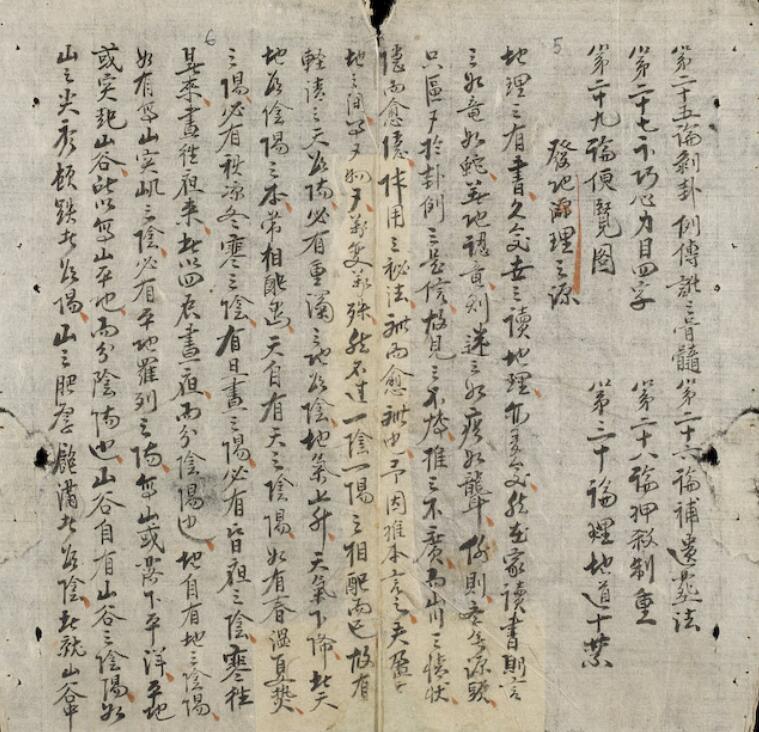 5
第二十五論剝卦例傳訛之骨髓 第二十六論補遺塟法
第二十七示巧心力目四字 第二十八論押殺制重
第二十九論便覽圖 第三十論理地道十禁
發地源理之源
地理之有書久矣世之讀地理亦多矣然在家讀書則言
之如竜如蛇至地認真則迷之如痴如聾何則失源頭
只區夕於卦例之是信故見之不推之不廣而山川之情狀
隱而愈隱作用之秘法秘而愈秘也予因推本言之夫盈
地之間夕如夕萬變萬殊然不過一陰一陽之相配而已故有
輕清之天為陽必有重濁之地為陰地氣上升天氣下降此天
地為陰陽之本常相配焉天自有天之陰陽如有春溫夏熱
6
之陽必有秋凉冬寒之陰有旦晝之陽必有昏夜之陰寒往
暑來晝往夜來此以四辰晝夜而分陰陽也地自有地之陰陽
如有高山突屼之陰必有平地羅列之陽高山或落下平洋平地
或突起山谷此以高山平地而分陰陽也山谷自有山谷之陰陽如
山之尖秀頓跌者為陽山之肥厚飽滿者為陰此就山谷中